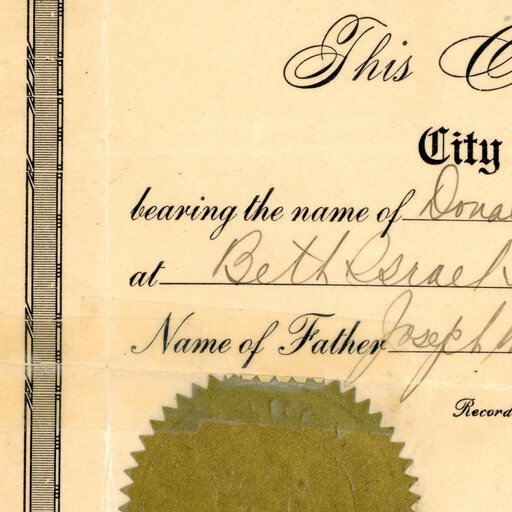 This C
City
bearing the name of Dona
at Beth Israel
Name of Father Joseph
Record